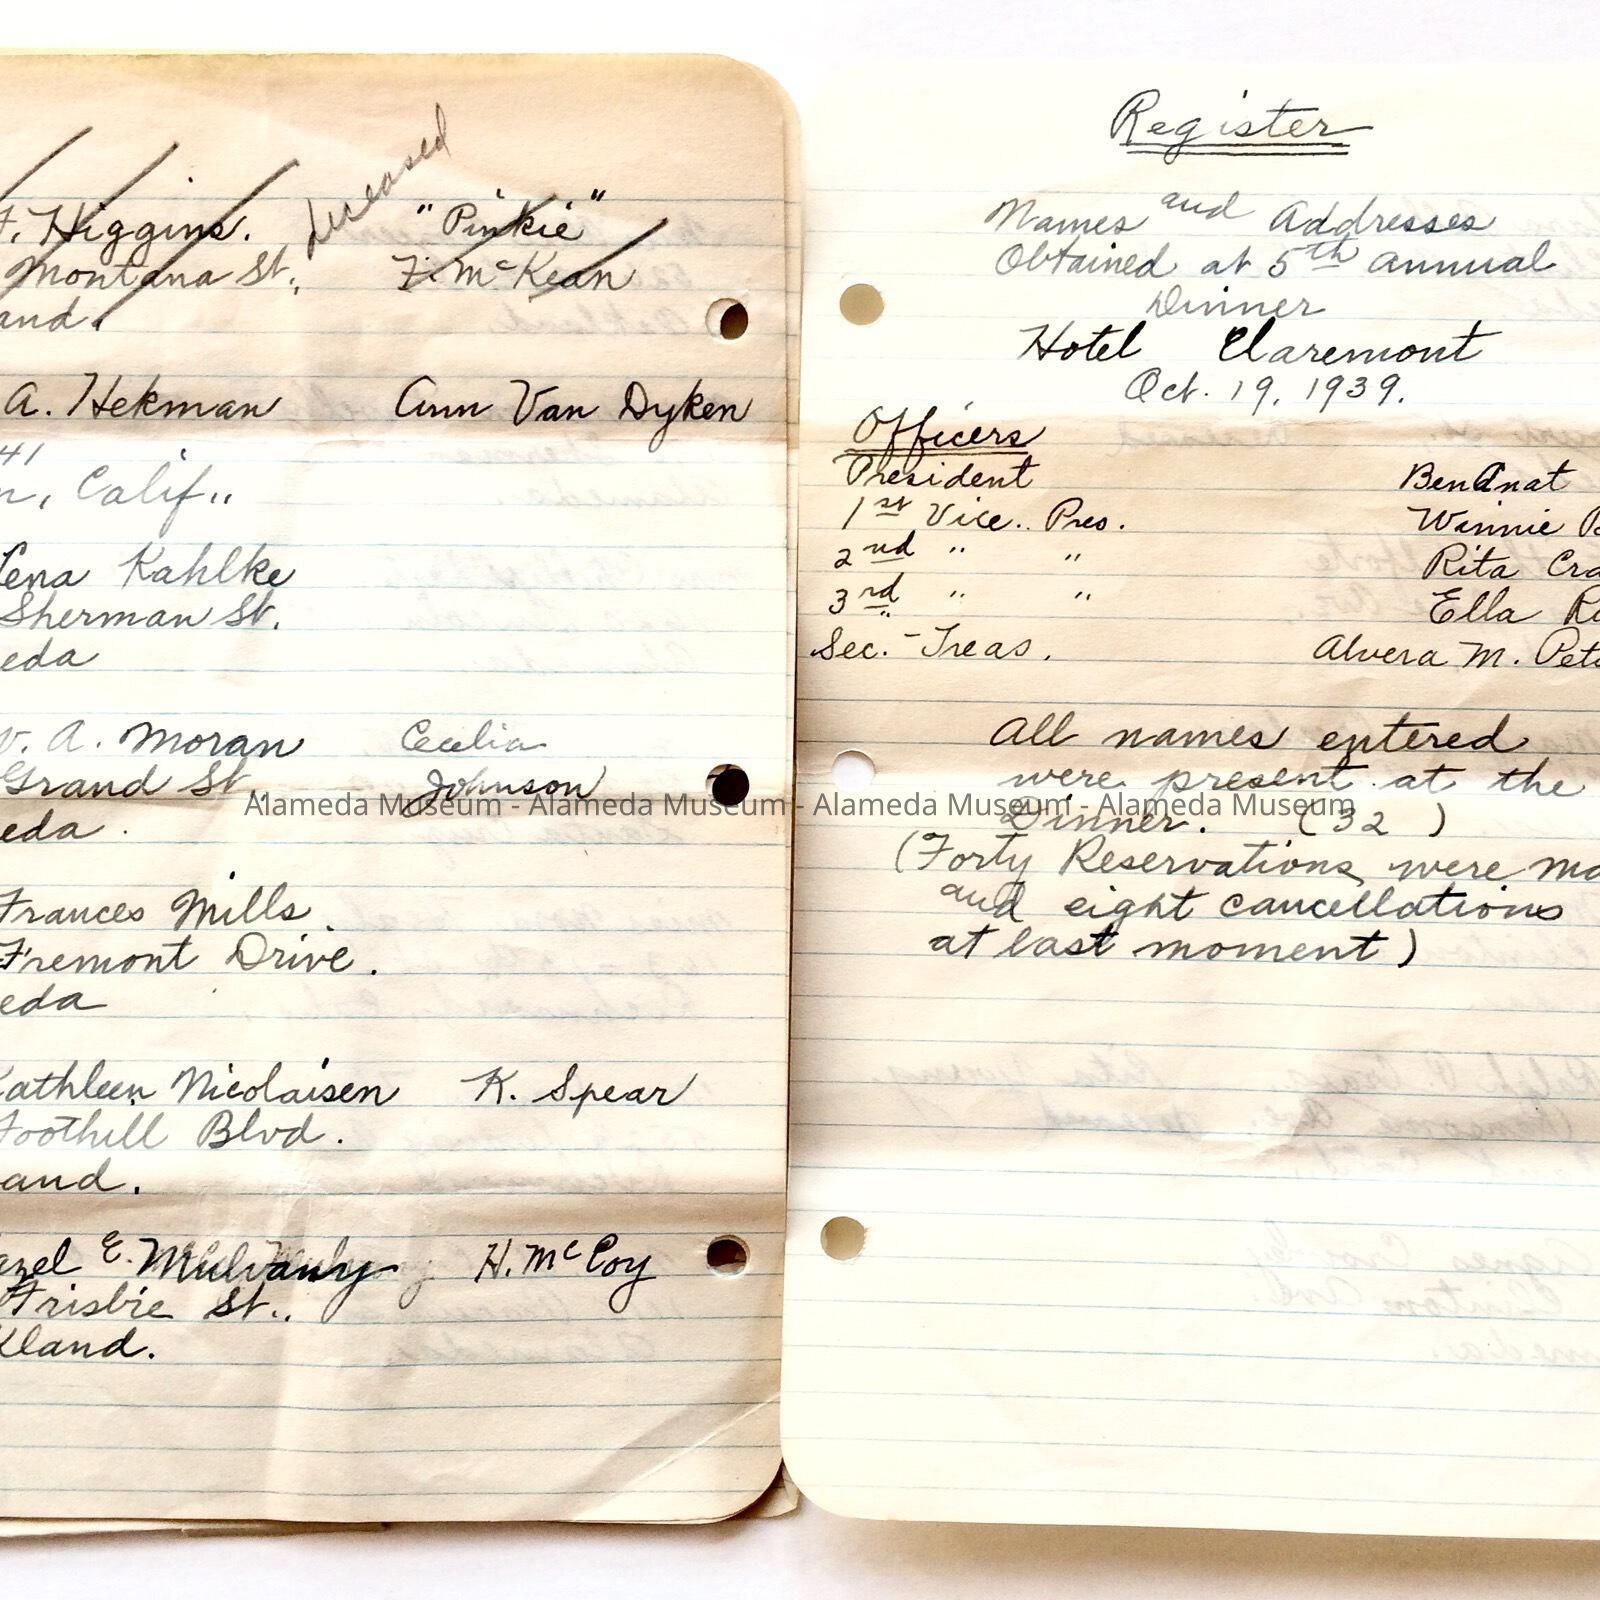 F. Higgins. deceased "Pinkie"
Montana St. F. McKean
and.
A. Hekman Ann Van Dyken
41
n, Calif.,
Lena Kahlke
Sherman St.
eda
W. A. Moran Cecilia
Grand St Johnson
eda.
Frances Mills.
Fremont Drive.
eda
Kathleen Nicolaisen K. Spear
Foothill Blvd.
and.
azel E. Mulvany H. McCoy
Frisbie St.
kland.
Register
Names and Addresses
Obtained at 5th annual
Dinner
Hotel Claremont
Oct. 19, 1939.
Officers
President Ben Anat
1st Vice. Pres. Winnie B
2nd " " Rita Cra
3rd " " Ella R
Sec.-Treas. Alvera M. Pet
All names entered
were present at the
Dinner. (32)
(Forty Reservations were ma
and eight cancellations
at last moment)
Alameda Museum - Alameda Museum - Alameda Museum - Alameda Museum